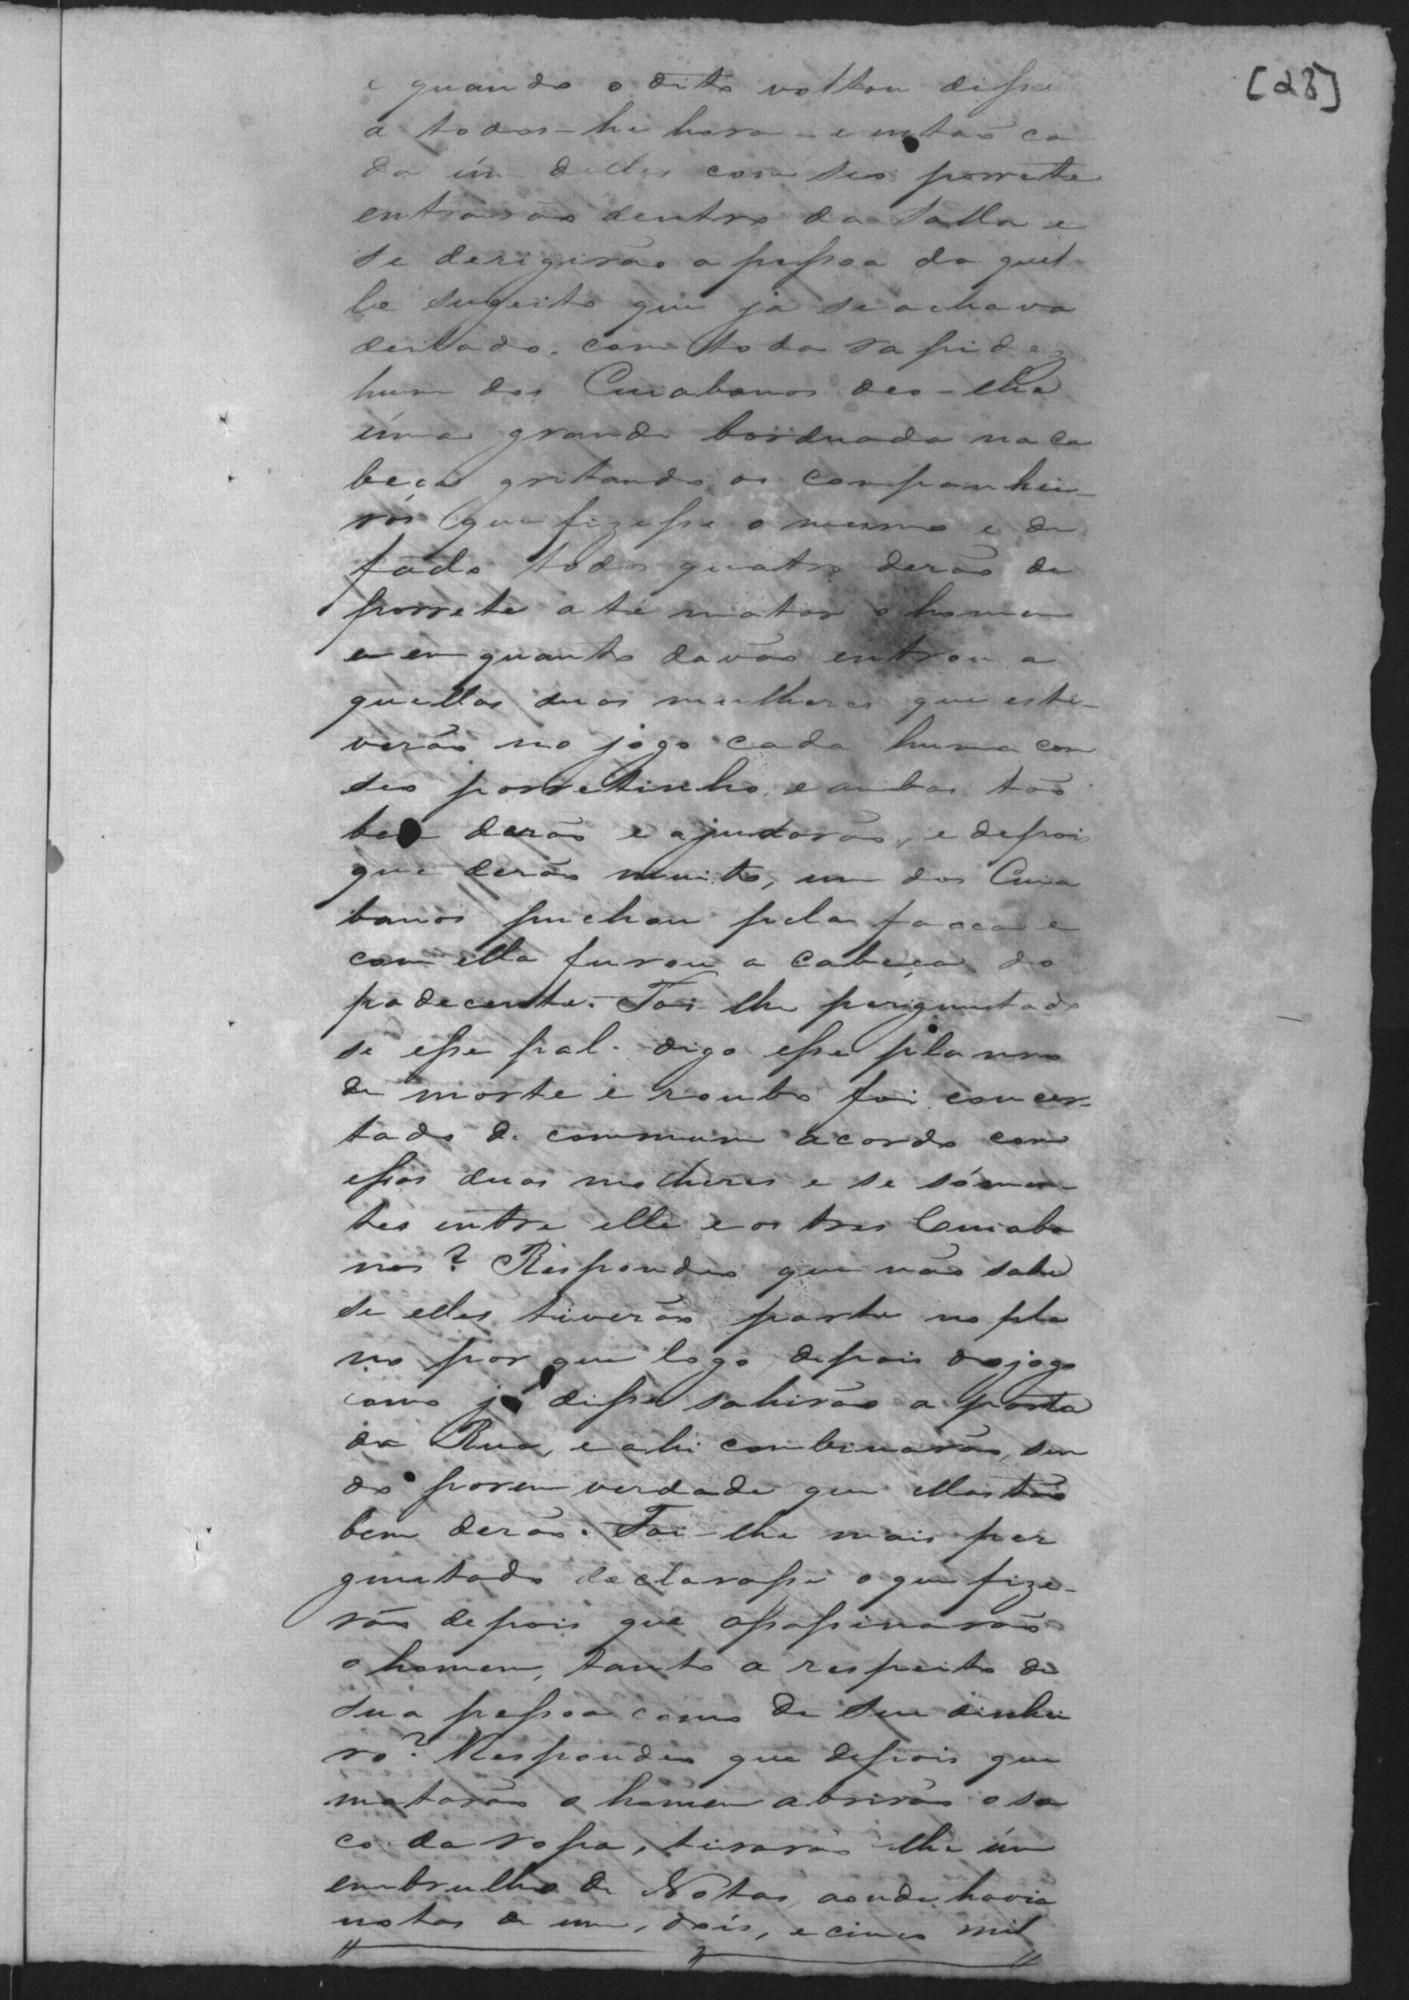 [23]
e quando o dito voltou disse
a todos – he hora – e então ca
da úm delles com seo porrete
entrárão dentro da salla e
se derigirão a pessoa da quel
le sugeito que já se achava
deitado. com toda rapidez
hum dos Cuiabanos deo-lhe
úma grande bordoada na ca
beça gritando os companhei-
ros que fizesse o mesmo e de
facto todos quatro derão de
porrete até matar o homem
e em quanto davão entrou a
quellas duas mulheres que esti-
verão no jogo cada huma com
seo porretinho, e ambas tão
bem derão e ajudarão, e depois
que derão muito, um dos Cuia
banos puchou pela facca e
com ella furou a cabeça do
padecente. Foi-lhe perguntado
se esse pal. digo esse planno
de morte e roubo foi concer-
tado de commum acordo com
essas duas molheres e se sómen-
tes entre elle e os tres Cuiaba
nos? Respondeo que não sabe
se elles tiverão parte no pla
no por que logo depois do jogo
como já disse sahirão a porta
da Rua, e ahi combinarão, sen
do porem verdade que ellas tão
bem derão. Foi-lhe mais per
guntado declarasse o que fize-
rão depois que assassinarão
o homem, tanto a respeito de
sua pessoa como de seu dinhei
ro? Respondeo que depois que
matarão o homem abrirão o sa
co da ropa, tirarão lhe úm
embrulho de Notas, aonde havia
notas de um, dois, e cinco mil